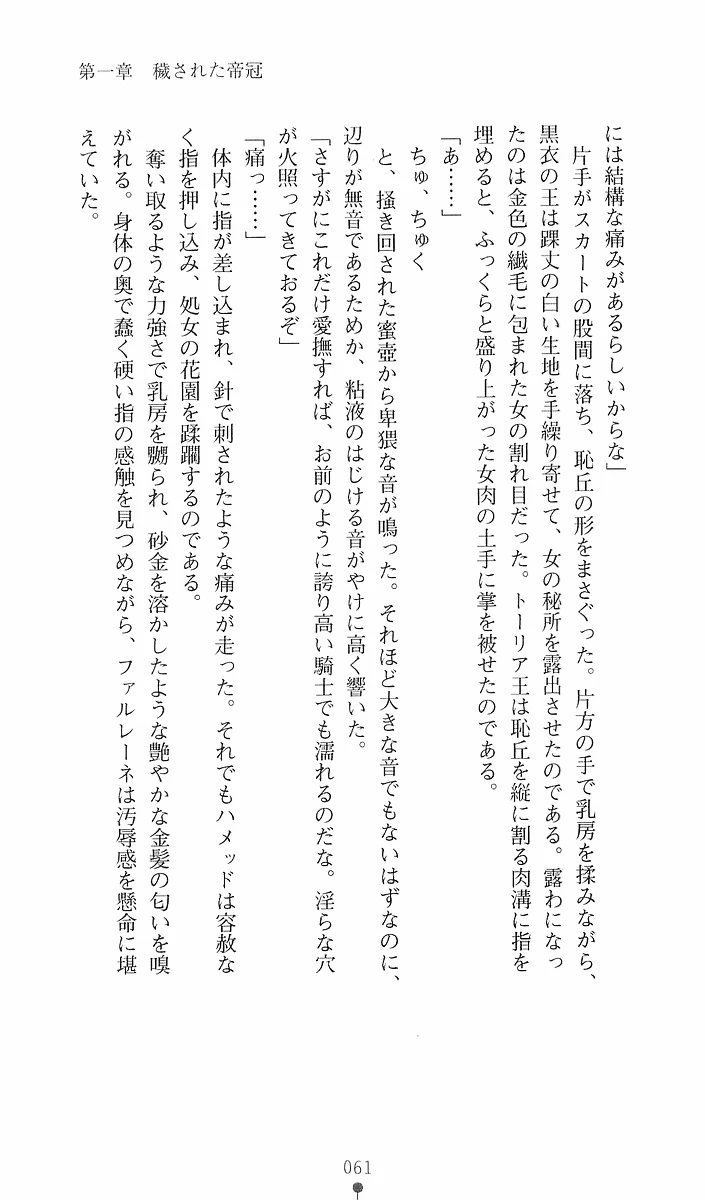 第一章　穢された帝冠
には結構な痛みがあるらしいからな」
片手がスカートの股間に落ち、恥丘の形をまさぐった。片方の手で乳房を揉みながら、
黒衣の王は踝丈の白い生地を手繰り寄せて、女の秘所を露出させたのである。露わになっ
たのは金色の繊毛に包まれた女の割れ目だった。トーリア王は恥丘を縦に割る肉溝に指を
埋めると、ふっくらと盛り上がった女肉の土手に掌を被せたのである。
「あ……」
ちゅ、ちゅく
と、掻き回された蜜壺から卑猥な音が鳴った。それほど大きな音でもないはずなのに、
辺りが無音であるためか、粘液のはじける音がやけに高く響いた。
「さすがにこれだけ愛撫すれば、お前のように誇り高い騎士でも濡れるのだな。淫らな穴
が火照ってきておるぞ」
「痛っ……」
体内に指が差し込まれ、針で刺されたような痛みが走った。それでもハメッドは容赦な
く指を押し込み、処女の花園を蹂躙するのである。
奪い取るような力強さで乳房を嬲られ、砂金を溶かしたような艶やかな金髪の匂いを嗅
がれる。身体の奥で蠢く硬い指の感触を見つめながら、ファルレーネは汚辱感を懸命に堪
えていた。
061